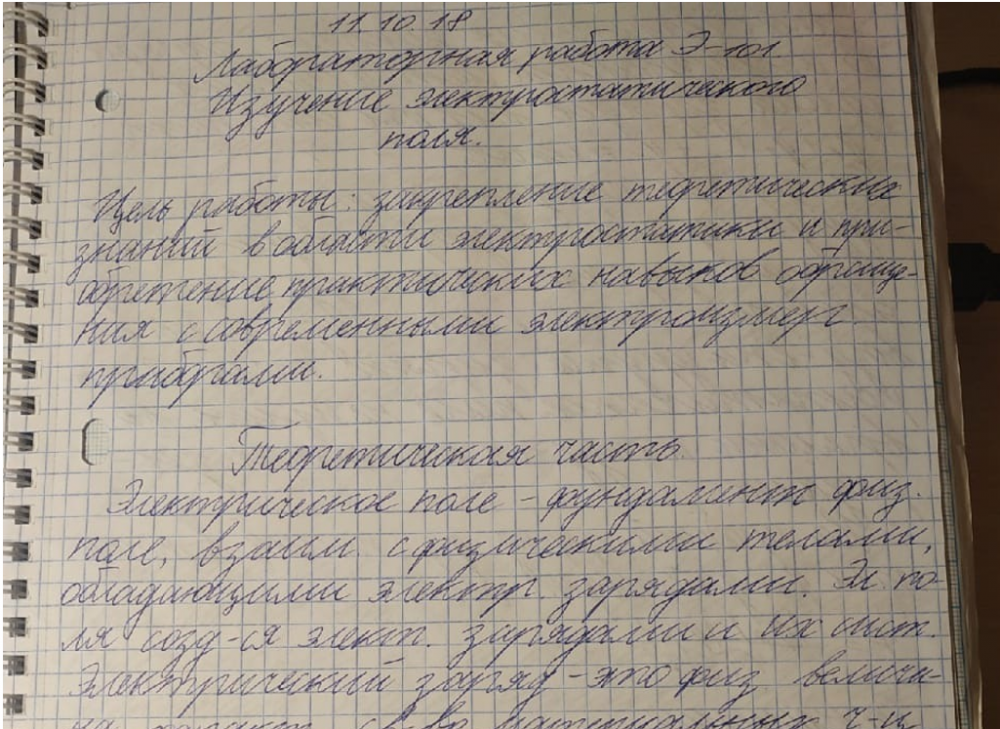 11.10.18
Лабораторная работа Э-101.
Изучение электростатического
поля.
Цель работы: закрепление теоретических
знаний в области электростатики и при-
обретение практических навыков обраще-
ния с современными электроизмер.
приборами.
Теоретическая часть
Электрическое поле - фундамент физ.
поле, взаим. с физическими телами,
обладающими электр. зарядами. Эл. по-
ля созд-ся элект. зарядами и их сист.
Электрический заряд - это физ величи-
на характ. св-во материальных ч-ц